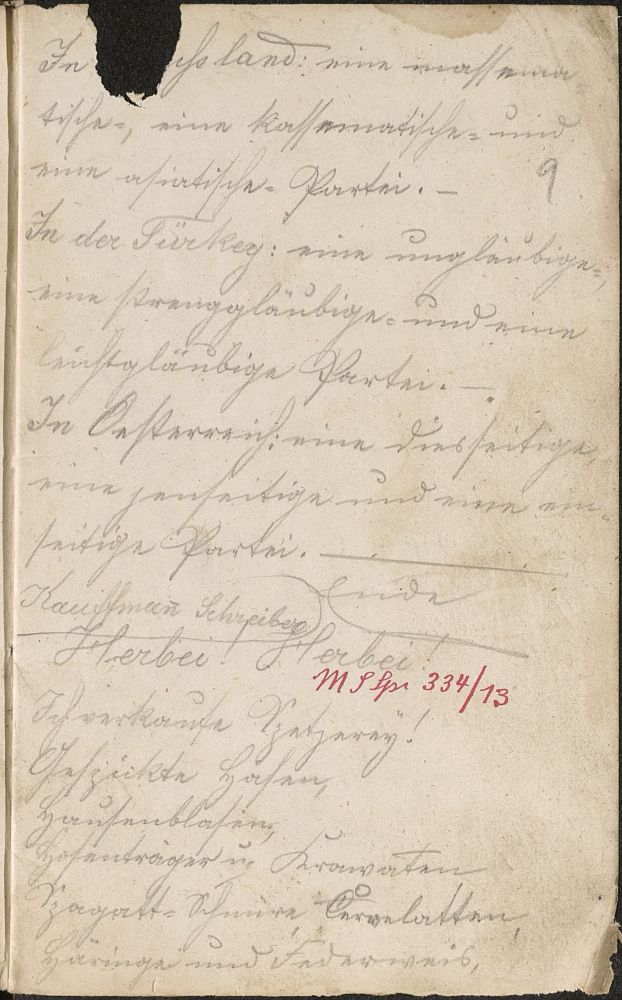 In chsland: eine massema-
tische-, eine kassematische- und
eine asiatische- Partei. —
9
In der Türkey: eine ungläubige-,
eine strenggläubige- und eine
leichtgläubige Partei. —
In Oesterreich: eine diesseitige,
eine jenseitige und eine ein-
seitige Partei. —
Ende
Kauffman̄ Schreiber
Herbei! Herbei!
334/13
Ich verkaufe Spetzerey!
Gespickte Hasen,
Hausenblasen,
Hosenträger u. Krawaten
Spagatt-Schnüre, Cervelatten,
Häringe und Federweis,